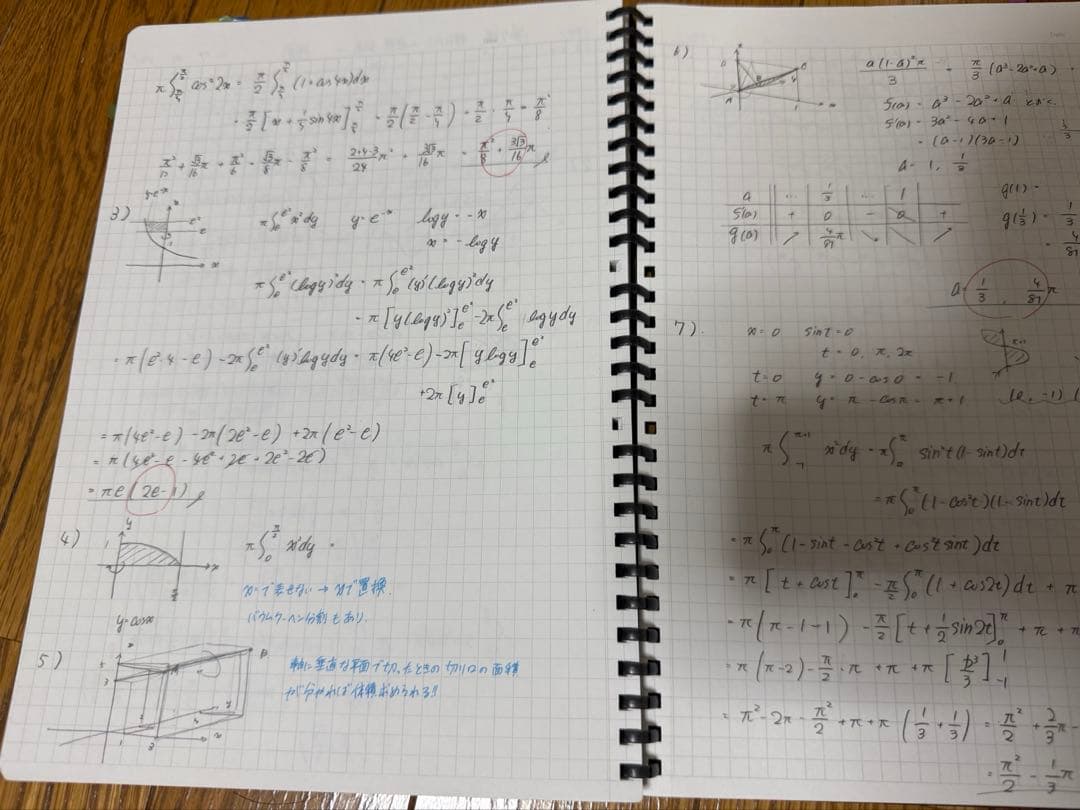 π∫_{π/4}^{π/2} cos²2x = π/2 ∫_{π/4}^{π/2} (1+cos4x)dx
= π/2 [x + 1/4 sin4x]_{π/4}^{π/2} = π/2 (π/2 - π/4) = π/2 · π/4 = π²/8
π²/12 + √3/16 π + π²/6 + √3/8 π - π²/8 = (2+4-3)/24 π² + 3√3/16 π = π²/8 + 3√3/16 π
3)
π∫_e^{e²} x²dy y=e^{-x} logy = -x
x = -logy
π∫_e^{e²} (logy)²dy = π∫_e^{e²} (y)'(logy)²dy
= π[y(logy)²]_e^{e²} - 2π∫_e^{e²} logydy
= π(e²·4 - e) - 2π∫_e^{e²} (y)'logydy = π(4e²-e) - 2π[ylogy]_e^{e²}
+2π[y]_e^{e²}
= π(4e²-e) - 2π(2e²-e) + 2π(e²-e)
= π(4e²-e - 4e²+2e + 2e²-2e)
= πe(2e-1)
4)
y
1
0
x
π/2
y=cosx
π∫_0^{π/2} x²dy =
x=で表せない→xyで置換
バウムクーヘン分割もあり.
5)
軸に垂直な平面で切ったときの切り口の面積
が分かれば体積求められる!!
6)
a(1-a)²π/3 = π/3 (a³-2a²+a)
f(a) = a³-2a²+a とおく
f'(a) = 3a²-4a+1
= (a-1)(3a-1)
a = 1, 1/3
a … 1/3 … 1
f'(a) + 0 - 0 +
g(a) ↗ 4/81π ↘ ↗
g(1) =
g(1/3) = 1/3
= 4/81
a = 1/3, 4/81 π
7).
x=0 sint=0
t=0, π, 2π
t=0 y=0-cos0=-1
t=π y=π-cosπ=π+1
(0, -1)
π∫_{-1}^{π+1} x²dy = π∫_0^π sin²t(1-sint)dt
= π∫_0^π (1-cos²t)(1-sint)dt
= π∫_0^π (1-sint-cos²t+cos²tsint)dt
= π[t+cost]_0^π - π/2∫_0^π (1+cos2t)dt + π
= π(π-1-1) - π/2[t+1/2 sin2t]_0^π + π + π
= π(π-2) - π/2·π + π + π[t³/3]_{-1}^1
= π²-2π - π²/2 + π + π(1/3+1/3) = π²/2 + 2/3π -
= π²/2 - 1/3π